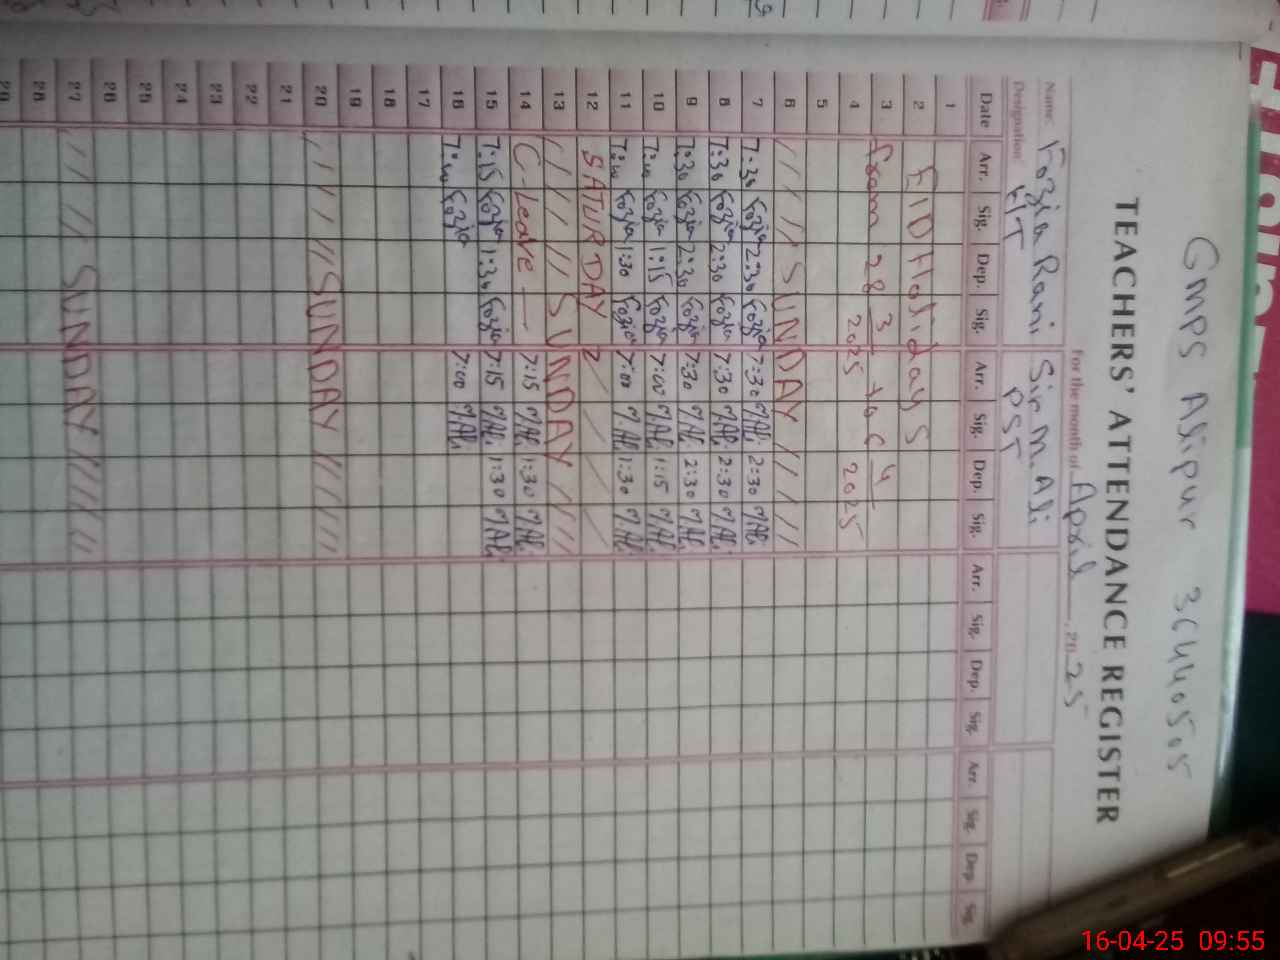 GMPS Alipur 36440505
TEACHERS' ATTENDANCE REGISTER
For the month of April, 2025
Name: Fozia Rani Sir M. Ali
Designation HT PST
Date Arr. Sig. Dep. Sig. Arr. Sig. Dep. Sig. Arr. Sig. Dep. Sig. Arr. Sig. Dep. Sig.
1
2 EID Holidays
3 from 28 3 to 6 4
4 2025 2025
5
6 //// SUNDAY ////
7 7:30 Fozia 2:30 Fozia 7:30 M.Ali 2:30 M.Ali
8 7:30 Fozia 2:30 Fozia 7:30 M.Ali 2:30 M.Ali
9 7:30 Fozia 2:30 Fozia 7:30 M.Ali 2:30 M.Ali
10 7:00 Fozia 1:15 Fozia 7:00 M.Ali 1:15 M.Ali
11 7:00 Fozia 1:30 Fozia 7:00 M.Ali 1:30 M.Ali
12 SATURDAY
13 ///// SUNDAY ////
14 C-Leave — 7:15 M.Ali 1:30 M.Ali
15 7:15 Fozia 1:30 Fozia 7:15 M.Ali 1:30 M.Ali
16 7:00 Fozia 7:00 M.Ali
17
18
19
20 ///// SUNDAY /////
21
22
23
24
25
26
27 //// SUNDAY /////
28
29
16-04-25 09:55